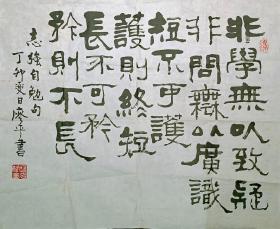 非學無以致疑
非問無以廣識
短不可護
護則終短
長不可矜
矜則不長
自勉句
丁卯夏日廖平書